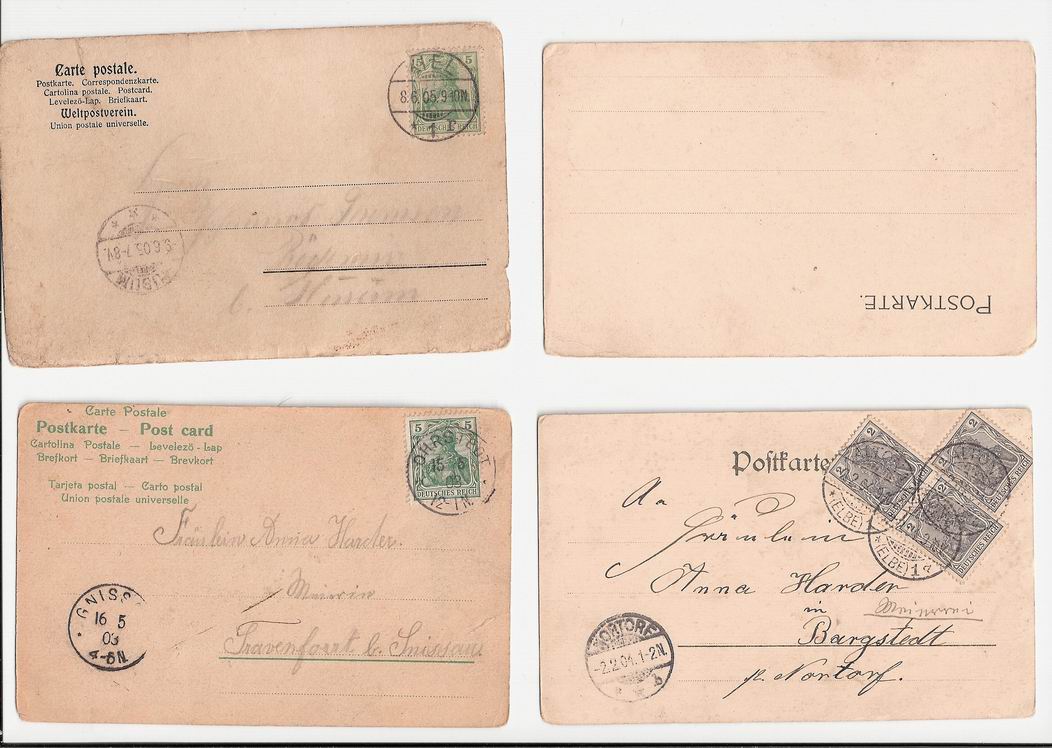 Carte postale.
Postkarte. Correspondenzkarte.
Cartolina postale. Postcard.
Levelező-Lap. Briefkaart.
Weltpostverein.
Union postale universelle.
5 5
KIEL
8.6.05.9-10N.
DEUTSCHES REICH
* 1 r
9.6.05.7-8V.
POSTKARTE.
Carte Postale
Postkarte — Post card
Cartolina Postale — Levelező-Lap
Brefkort — Briefkaart — Brevkort
Tarjeta postal — Carto postal
Union postale universelle
5 5
15 5
03
12-1N.
DEUTSCHES REICH
Fräulein Anna Harder.
Meierin
Travenfoort b. Gnissau
GNISS
16 5
03
N
Postkarte
2 2
ALTONA
*(ELBE)1
DEUTSCHES REICH
2
ALTONA
*(ELBE)1a
DEUTSCHES REICH
An
Fräulein
Anna Harder
in Meierei
Bargstedt
p. Nortorf.
NORTORF
-2.2.04.1-2N.
* * b